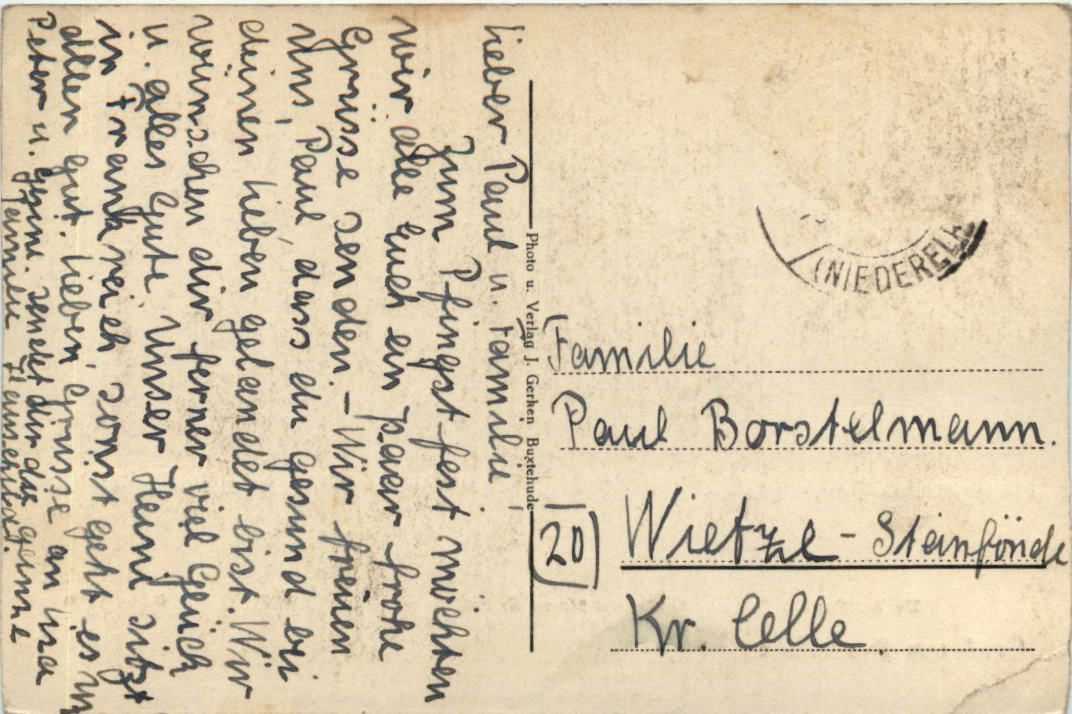 Lieber Paul u. Familie!
Zum Pfingstfest möchten
wir alle Euch ein paar frohe
Grüsse senden. - Wir freuen
uns, Paul, dass du gesund bei
deinen Lieben gelandet bist. Wir
wünschen dir ferner viel Glück
u. alles Gute. Unser Heini sitzt
in Frankreich sonst geht es uns
allen gut. Lieben, Grüsse an
Peter u. sendet dir die ganze
Familie
Photo u. Verlag J. Gerken Buxtehude
(NIEDERELB
Familie
Paul Borstelmann.
(20) Wietze - Steinförde
Kr. Celle